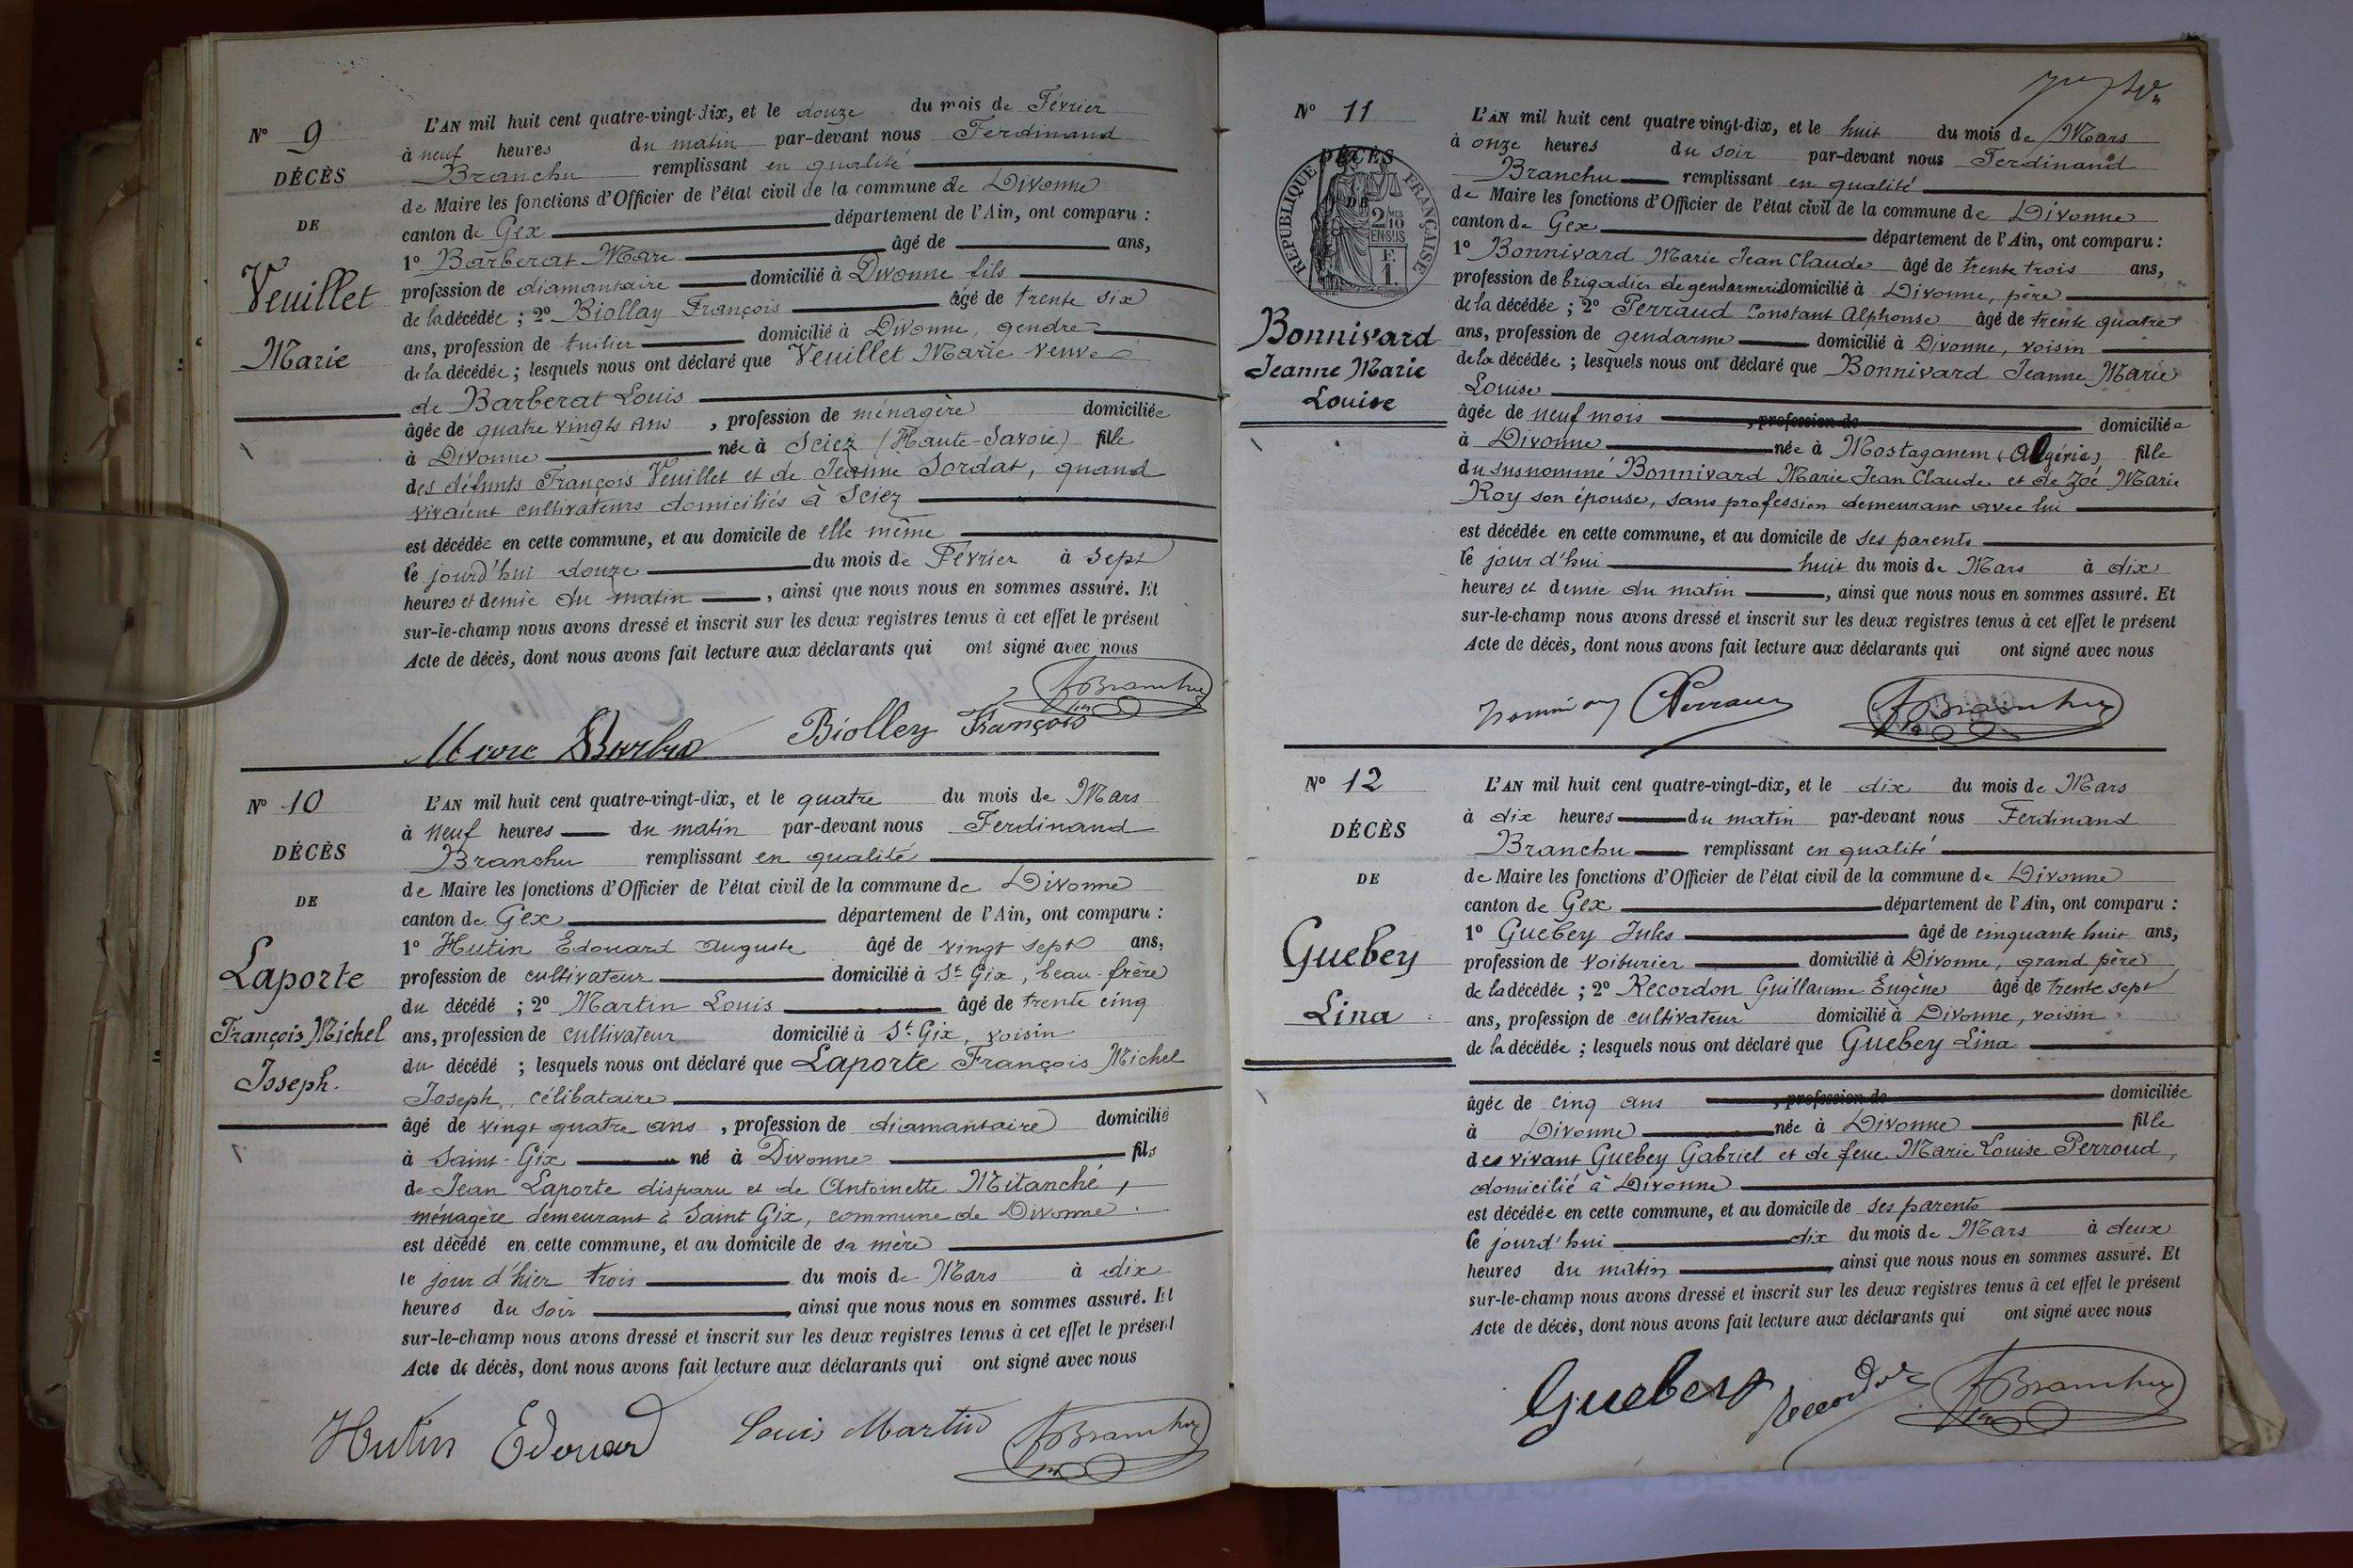 N° 9
DÉCÈS
DE
Veuillet
Marie
L'AN mil huit cent quatre-vingt-dix, et le douze du mois de Février
à neuf heures du matin par-devant nous Ferdinand
Branchu remplissant en qualité
de Maire les fonctions d'Officier de l'état civil de la commune de Divonne
canton de Gex département de l'Ain, ont comparu :
1° Barberat Marc âgé de ans,
profession de diamantaire domicilié à Divonne fils
de la décédée ; 2° Biollay François âgé de trente six
ans, profession de tuilier domicilié à Divonne, gendre
de la décédée ; lesquels nous ont déclaré que Veuillet Marie veuve
de Barberat Louis
âgée de quatre vingts ans , profession de ménagère domiciliée
à Divonne née à Sciez (Haute-Savoie) fille
des défunts François Veuillet et de Jeanne Sordat, quand
vivaient cultivateurs domiciliés à Sciez
est décédée en cette commune, et au domicile de elle même
le jourd'hui douze du mois de Février à sept
heures et demie du matin , ainsi que nous nous en sommes assuré. Et
sur-le-champ nous avons dressé et inscrit sur les deux registres tenus à cet effet le présent
Acte de décès, dont nous avons fait lecture aux déclarants qui ont signé avec nous
FBranchu
Marc Biolley François
N° 10
DÉCÈS
DE
Laporte
François Michel
Joseph.
L'AN mil huit cent quatre-vingt-dix, et le quatre du mois de Mars
à neuf heures du matin par-devant nous Ferdinand
Branchu remplissant en qualité
de Maire les fonctions d'Officier de l'état civil de la commune de Divonne
canton de Gex département de l'Ain, ont comparu :
1° Hutin Edouard Auguste âgé de vingt sept ans,
profession de cultivateur domicilié à St Gix, beau-frère
du décédé ; 2° Martin Louis âgé de trente cinq
ans, profession de cultivateur domicilié à St Gix, voisin
du décédé ; lesquels nous ont déclaré que Laporte François Michel
Joseph, célibataire
âgé de vingt quatre ans , profession de diamantaire domicilié
à Saint-Gix né à Divonne fils
de Jean Laporte disparu et de Antoinette Mitanché,
ménagère demeurant à Saint Gix, commune de Divonne.
est décédé en cette commune, et au domicile de sa mère
le jour d'hier trois du mois de Mars à dix
heures du soir , ainsi que nous nous en sommes assuré. Et
sur-le-champ nous avons dressé et inscrit sur les deux registres tenus à cet effet le présent
Acte de décès, dont nous avons fait lecture aux déclarants qui ont signé avec nous
Hutin Edouard Louis Martin FBranchu
N° 11
DÉCÈS
DE
RÉPUBLIQUE FRANÇAISE
2 MES 10
EN SUS
F. 1.
Bonnivard
Jeanne Marie
Louise
L'AN mil huit cent quatre vingt-dix, et le huit du mois de Mars
à onze heures du soir par-devant nous Ferdinand
Branchu remplissant en qualité
de Maire les fonctions d'Officier de l'état civil de la commune de Divonne
canton de Gex département de l'Ain, ont comparu :
1° Bonnivard Marie Jean Claude âgé de trente trois ans,
profession de brigadier de gendarmerie domicilié à Divonne, père
de la décédée ; 2° Perraud Constant Alphonse âgé de trente quatre
ans, profession de gendarme domicilié à Divonne, voisin
de la décédée ; lesquels nous ont déclaré que Bonnivard Jeanne Marie
Louise
âgée de neuf mois , profession de domiciliée
à Divonne née à Mostaganem (Algérie) fille
du susnommé Bonnivard Marie Jean Claude et de Zoé Marie
Roy son épouse, sans profession demeurant avec lui
est décédée en cette commune, et au domicile de ses parents
le jour d'hui huit du mois de Mars à dix
heures et demie du matin , ainsi que nous nous en sommes assuré. Et
sur-le-champ nous avons dressé et inscrit sur les deux registres tenus à cet effet le présent
Acte de décès, dont nous avons fait lecture aux déclarants qui ont signé avec nous
FBranchu
N° 12
DÉCÈS
DE
Guebey
Lina
L'AN mil huit cent quatre-vingt-dix, et le dix du mois de Mars
à dix heures du matin par-devant nous Ferdinand
Branchu remplissant en qualité
de Maire les fonctions d'Officier de l'état civil de la commune de Divonne
canton de Gex département de l'Ain, ont comparu :
1° Guebey Jules âgé de cinquante huit ans,
profession de voiturier domicilié à Divonne, grand père
de la décédée ; 2° Recordon Guillaume Eugène âgé de trente sept
ans, profession de cultivateur domicilié à Divonne, voisin
de la décédée ; lesquels nous ont déclaré que Guebey Lina
âgée de cinq ans , profession de domiciliée
à Divonne née à Divonne fille
des vivant Guebey Gabriel et de feue Marie Louise Perroud,
domicilié à Divonne
est décédée en cette commune, et au domicile de ses parents
le jourd'hui dix du mois de Mars à deux
heures du matin , ainsi que nous nous en sommes assuré. Et
sur-le-champ nous avons dressé et inscrit sur les deux registres tenus à cet effet le présent
Acte de décès, dont nous avons fait lecture aux déclarants qui ont signé avec nous
Guebey Recordon FBranchu